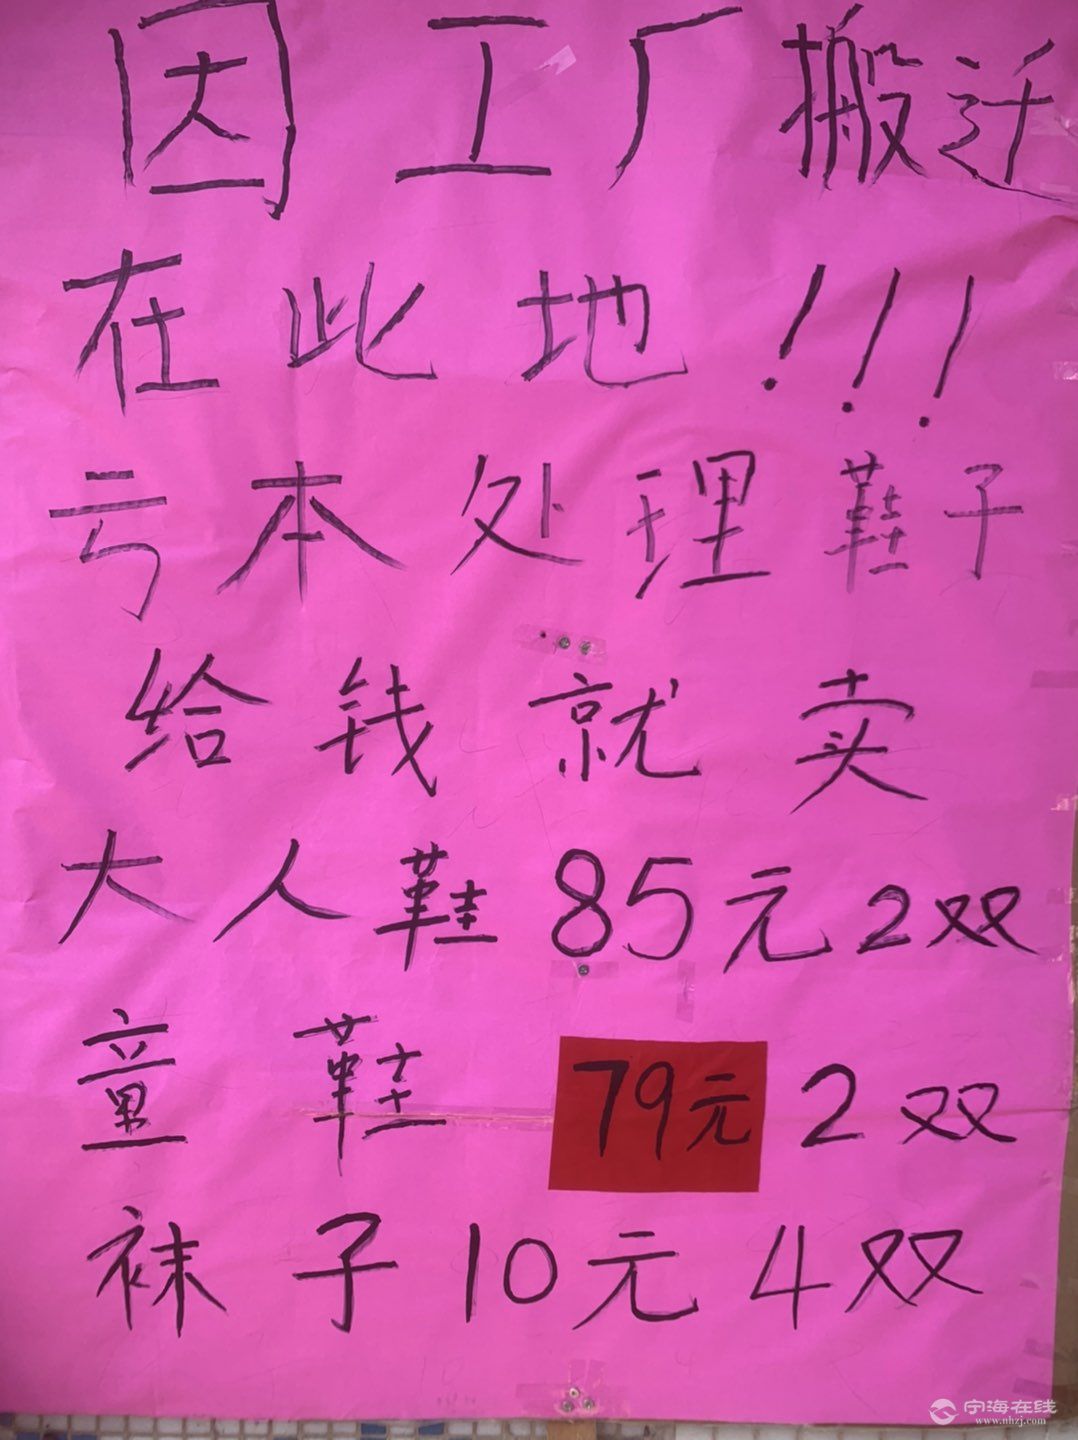 因工厂搬迁
在此地！！！
亏本处理鞋子
给钱就卖
大人鞋85元2双
童鞋79元2双
袜子10元4双
宁海在线
www.nhzj.com